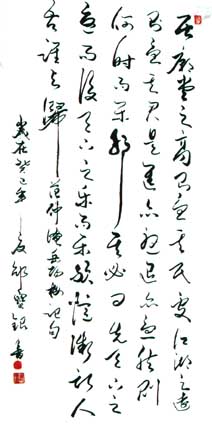 居廟堂之高則憂其民處江湖之遠
則憂其君是進亦憂退亦憂然則
何時而樂耶其必曰先天下之
憂而後天下之樂而樂歟噫微斯人
吾誰與歸 范仲淹岳陽樓記句
歲在癸巳年 書